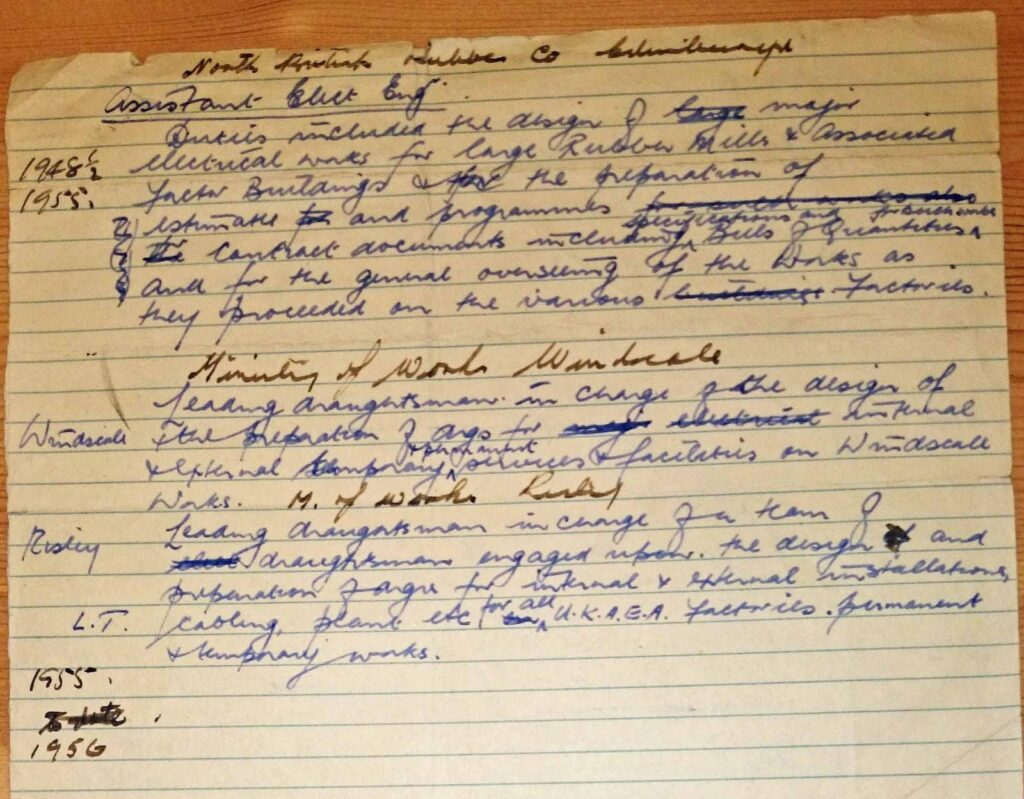 North British Rubber Co Edinburgh
Assistant Elect Eng.
Duties included the design of large major
1948 electrical works for large Rubber Mills & Associated
1955. Factor Buildings & for the preparation of
estimate for and programmes
specifications and
the Contract documents including ^ Bills of Quantities ^
and for the general overseeing of the works as
they proceeded on the various buildings Factories.
Ministry of Works Windscale
Leading draughtsman in charge of the design of
Windscale & the preparation of drgs for major electrical internal
& permanent
& external temporary ^ services & facilities on Windscale
Works. M. of Works Risley
Risley Leading draughtsman in charge of a team of
elect draughtsman engaged upon the design of and
preparation of drgs for internal & external installations,
for all
L.T. (cabling, plant etc) ^ U.K.A.E.A. Factories. permanent
& temporary works.
1955.
To date
1956